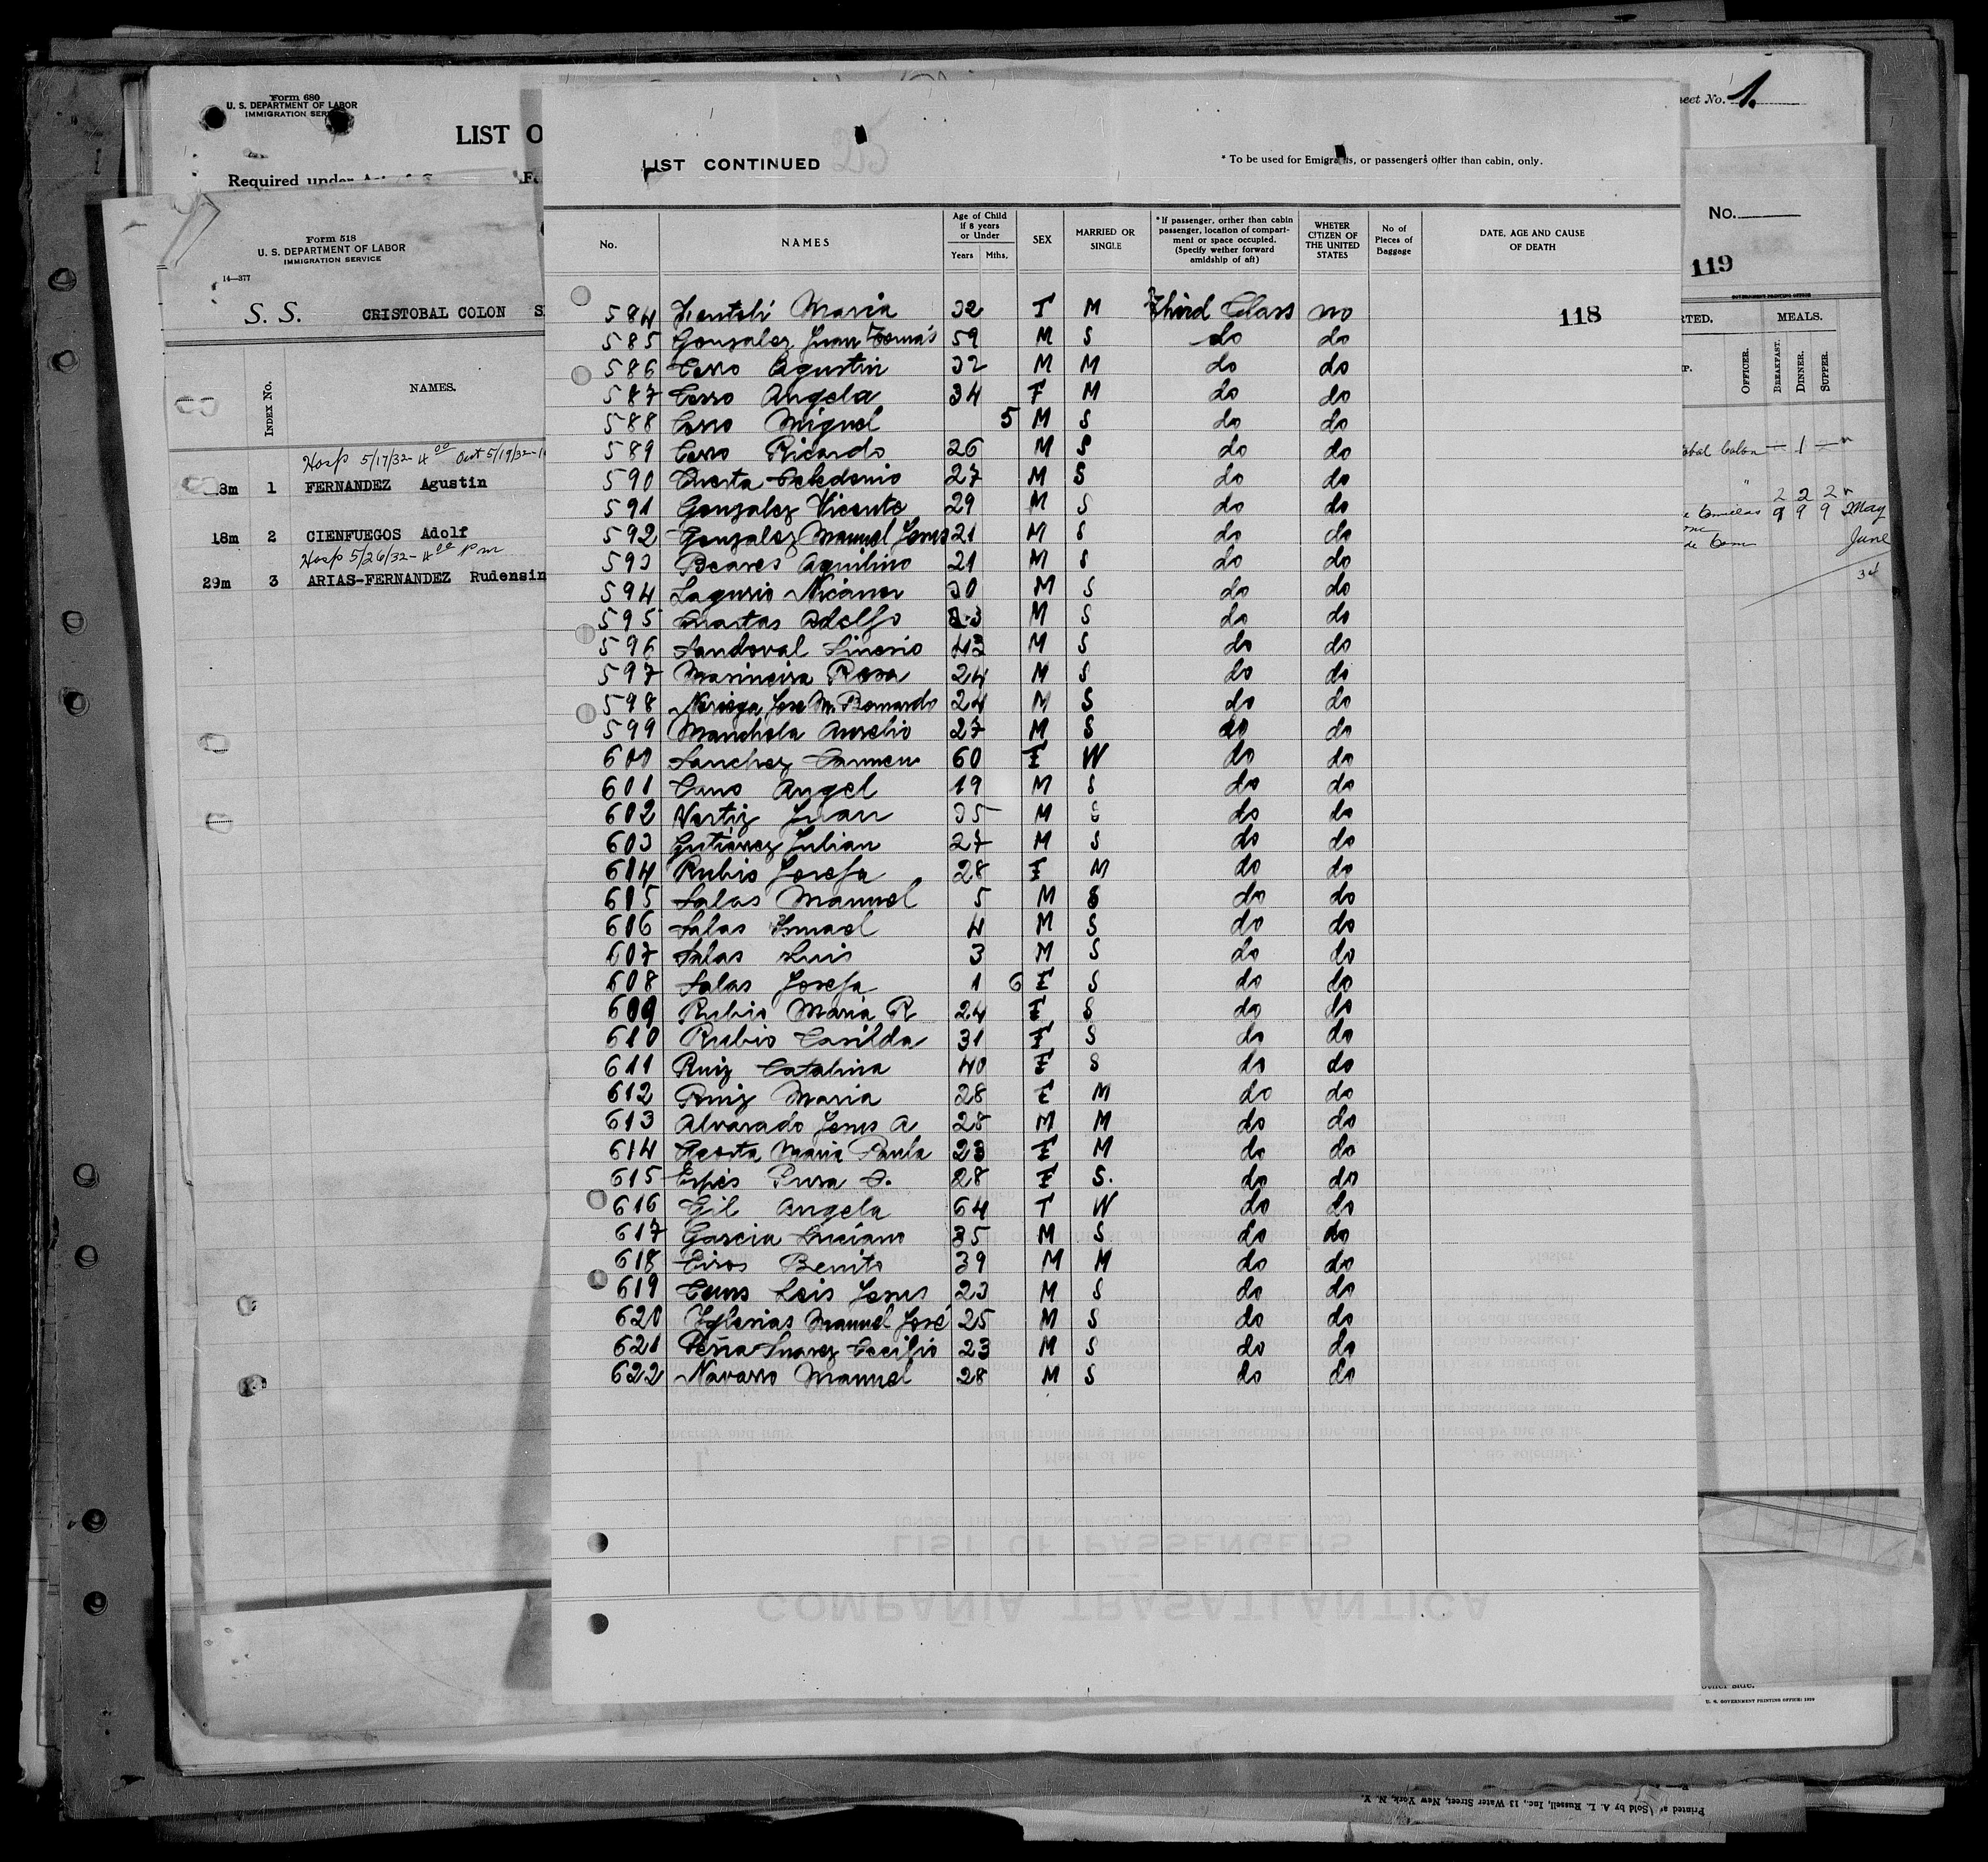 Form 680
U. S. DEPARTMENT OF LABOR
IMMIGRATION SERV
LIST O
Required under
Sheet No. 1.
Form 518
U. S. DEPARTMENT OF LABOR
IMMIGRATION SERVICE
14—377
S. S. CRISTOBAL COLON
INDEX No. NAMES.
Hosp 5/17/32- 4 00 Out 5/19/32-
18m 1 FERNANDEZ Agustin
18m 2 CIENFUEGOS Adolf
Hosp 5/26/32- 4 00 Pm
29m 3 ARIAS-FERNANDEZ Rudensin
LIST CONTINUED
* To be used for Emigrants, or passengers other than cabin, only.
No. NAMES Age of Child if 8 years or Under Years Mths. SEX MARRIED OR SINGLE * If passenger, orther than cabin passenger, location of compartment or space occupied. (Specify wether forward amidship of aft) WHETER CITIZEN OF THE UNITED STATES No of Pieces of Baggage DATE, AGE AND CAUSE OF DEATH
118
584 Maria 32 F M Third Class no
585 Gonzalez Juan Tomás 59 M S do do
586 Cerro Agustin 32 M M do do
587 Cerro Angela 34 F M do do
588 Cerro Miguel 5 M S do do
589 Cerro Ricardo 26 M S do do
590 Cuesta Celedonio 27 M S do do
591 Gonzalez Vicente 29 M S do do
592 Gonzalez Manuel Jesus 21 M S do do
593 Beares Aquilino 21 M S do do
594 Nicanor 30 M S do do
595 Adolfo 23 M S do do
596 Sandoval Sinesio 43 M S do do
597 Marineira Rosa 24 M S do do
598 Noriega Jose M. Bernardo 24 M S do do
599 Manchola Aurelio 27 M S do do
600 Sanchez Carmen 60 F W do do
601 Cano Angel 19 M S do do
602 Nertiz Juan 35 M S do do
603 Gutierrez Julian 27 M S do do
604 Rubio Josefa 28 F M do do
605 Salas Manuel 5 M S do do
606 Salas Ismael 4 M S do do
607 Salas Luis 3 M S do do
608 Salas Josefa 1 6 F S do do
609 Rubio Maria R 24 F S do do
610 Rubio Casilda 31 F S do do
611 Ruiz Catalina 40 F S do do
612 Ruiz Maria 28 F M do do
613 Alvarado Jesus A 28 M M do do
614 Acosta Maria Paula 23 F M do do
615 Pura 28 F S. do do
616 Gil Angela 64 F W do do
617 Garcia Luciano 35 M S do do
618 Eiros Benito 39 M M do do
619 Leis Jesus 23 M S do do
620 Yglesias Manuel José 25 M S do do
621 Peña Suarez Cecilio 23 M S do do
622 Navarro Manuel 28 M S do do
No.
119
GOVERNMENT PRINTING OFFICE
RTED. MEALS.
OFFICER. BREAKFAST. DINNER. SUPPER.
obal Colon — 1 —
" 2 2 2
9 9 9 May
June
COMPAÑÍA TRASATLÁNTICA
LIST OF PASSENGERS
other side.
U. S. GOVERNMENT PRINTING OFFICE: 1929
Printed and Sold by A. L. Russell, Inc., 13 Water Street, New York, N. Y.